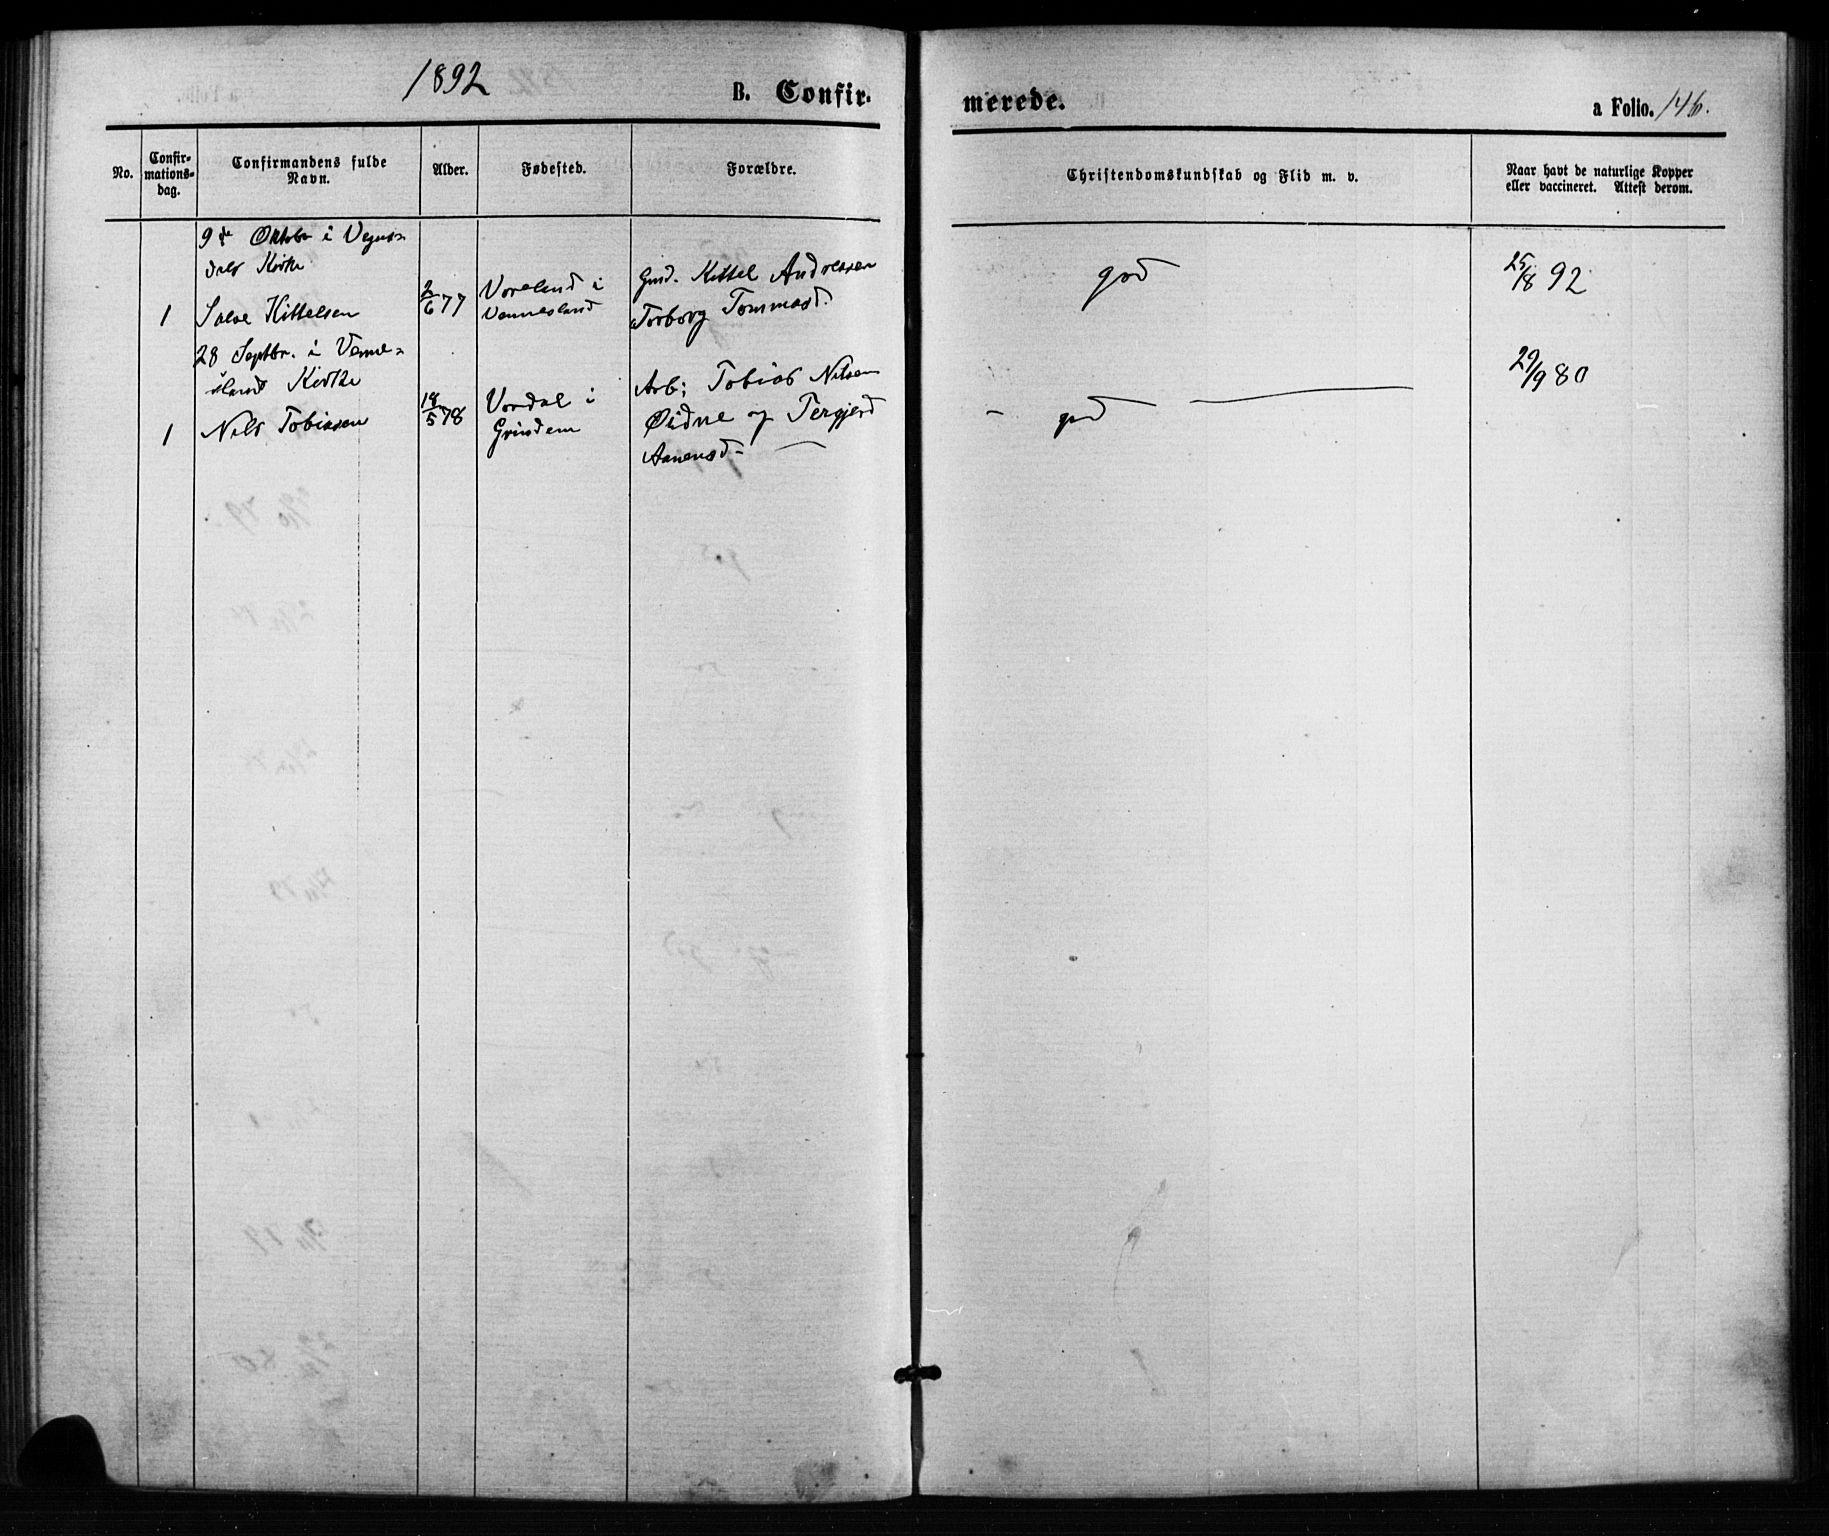 1892
B. Confir-
merede.
a Folio. 146.
No.
Confir-
mations-
dag.
Confirmandens fulde
Navn.
Alder.
Fødested.
Forældre.
Christendomskundskab og Flid m. v.
Naar havt de naturlige Kopper
eller vaccineret. Attest derom.
9de Oktobr i Vegus-
dals Kirke
1 Salve Kittelsen
2/6 77
Voreland i
Vennesland
Gmd. Kittel Andressen
Torborg Tommasd.
god
25/8 92
28 Septbr. i Venne-
slands Kirke
1 Nils Tobiassen
18/5 78
Vordal i
Grindem
Arb: Tobias Nilsen
Øidne og Tergjerd
Aanensd -
- god
29/9 80